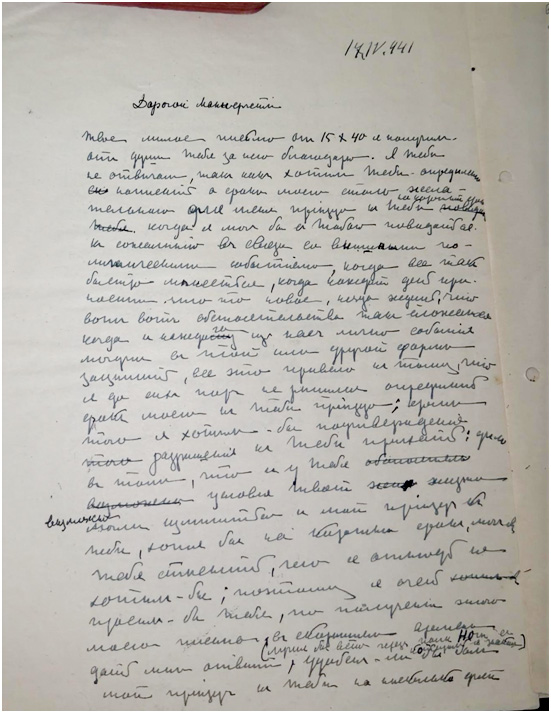 17.IV.941
Дорогой
Твое милое письмо от 15 X 40 я получил.
от души тебя за него благодарю. Я тебе
не отвечал, так как хотел тебе определенно
написать о сроке моего столь жела-
тельного для меня приезда к тебе
когда я мог бы с тобою повидаться.
К сожалению в связи со по-
литическими событиями, когда все так
быстро меняется, когда каждый день при-
носит что то новое, когда ждешь, что
вот вот обстоятельства так сложатся
когда и каждого из нас лично события
могут в той или другой форме
зацепить, все это привело к тому, что
я до сих пор не решился определить
срок моего к тебе приезда; кроме
того я хотел-бы подтверждения
разрешения к тебе приехать; дело
в том, что и у тебя
условия твоей жизни
возможно
могли измениться и мой приезд к
тебе, хотя бы на короткий срок, мог-бы
тебя стеснить, чего я отнюдь не
хотел-бы; поэтому я очень
просил-бы тебя, по получении этого
моего письма, в скорейшем времени
дать мне ответ, удобен-ли бы был
мой приезд к тебе на несколько дней